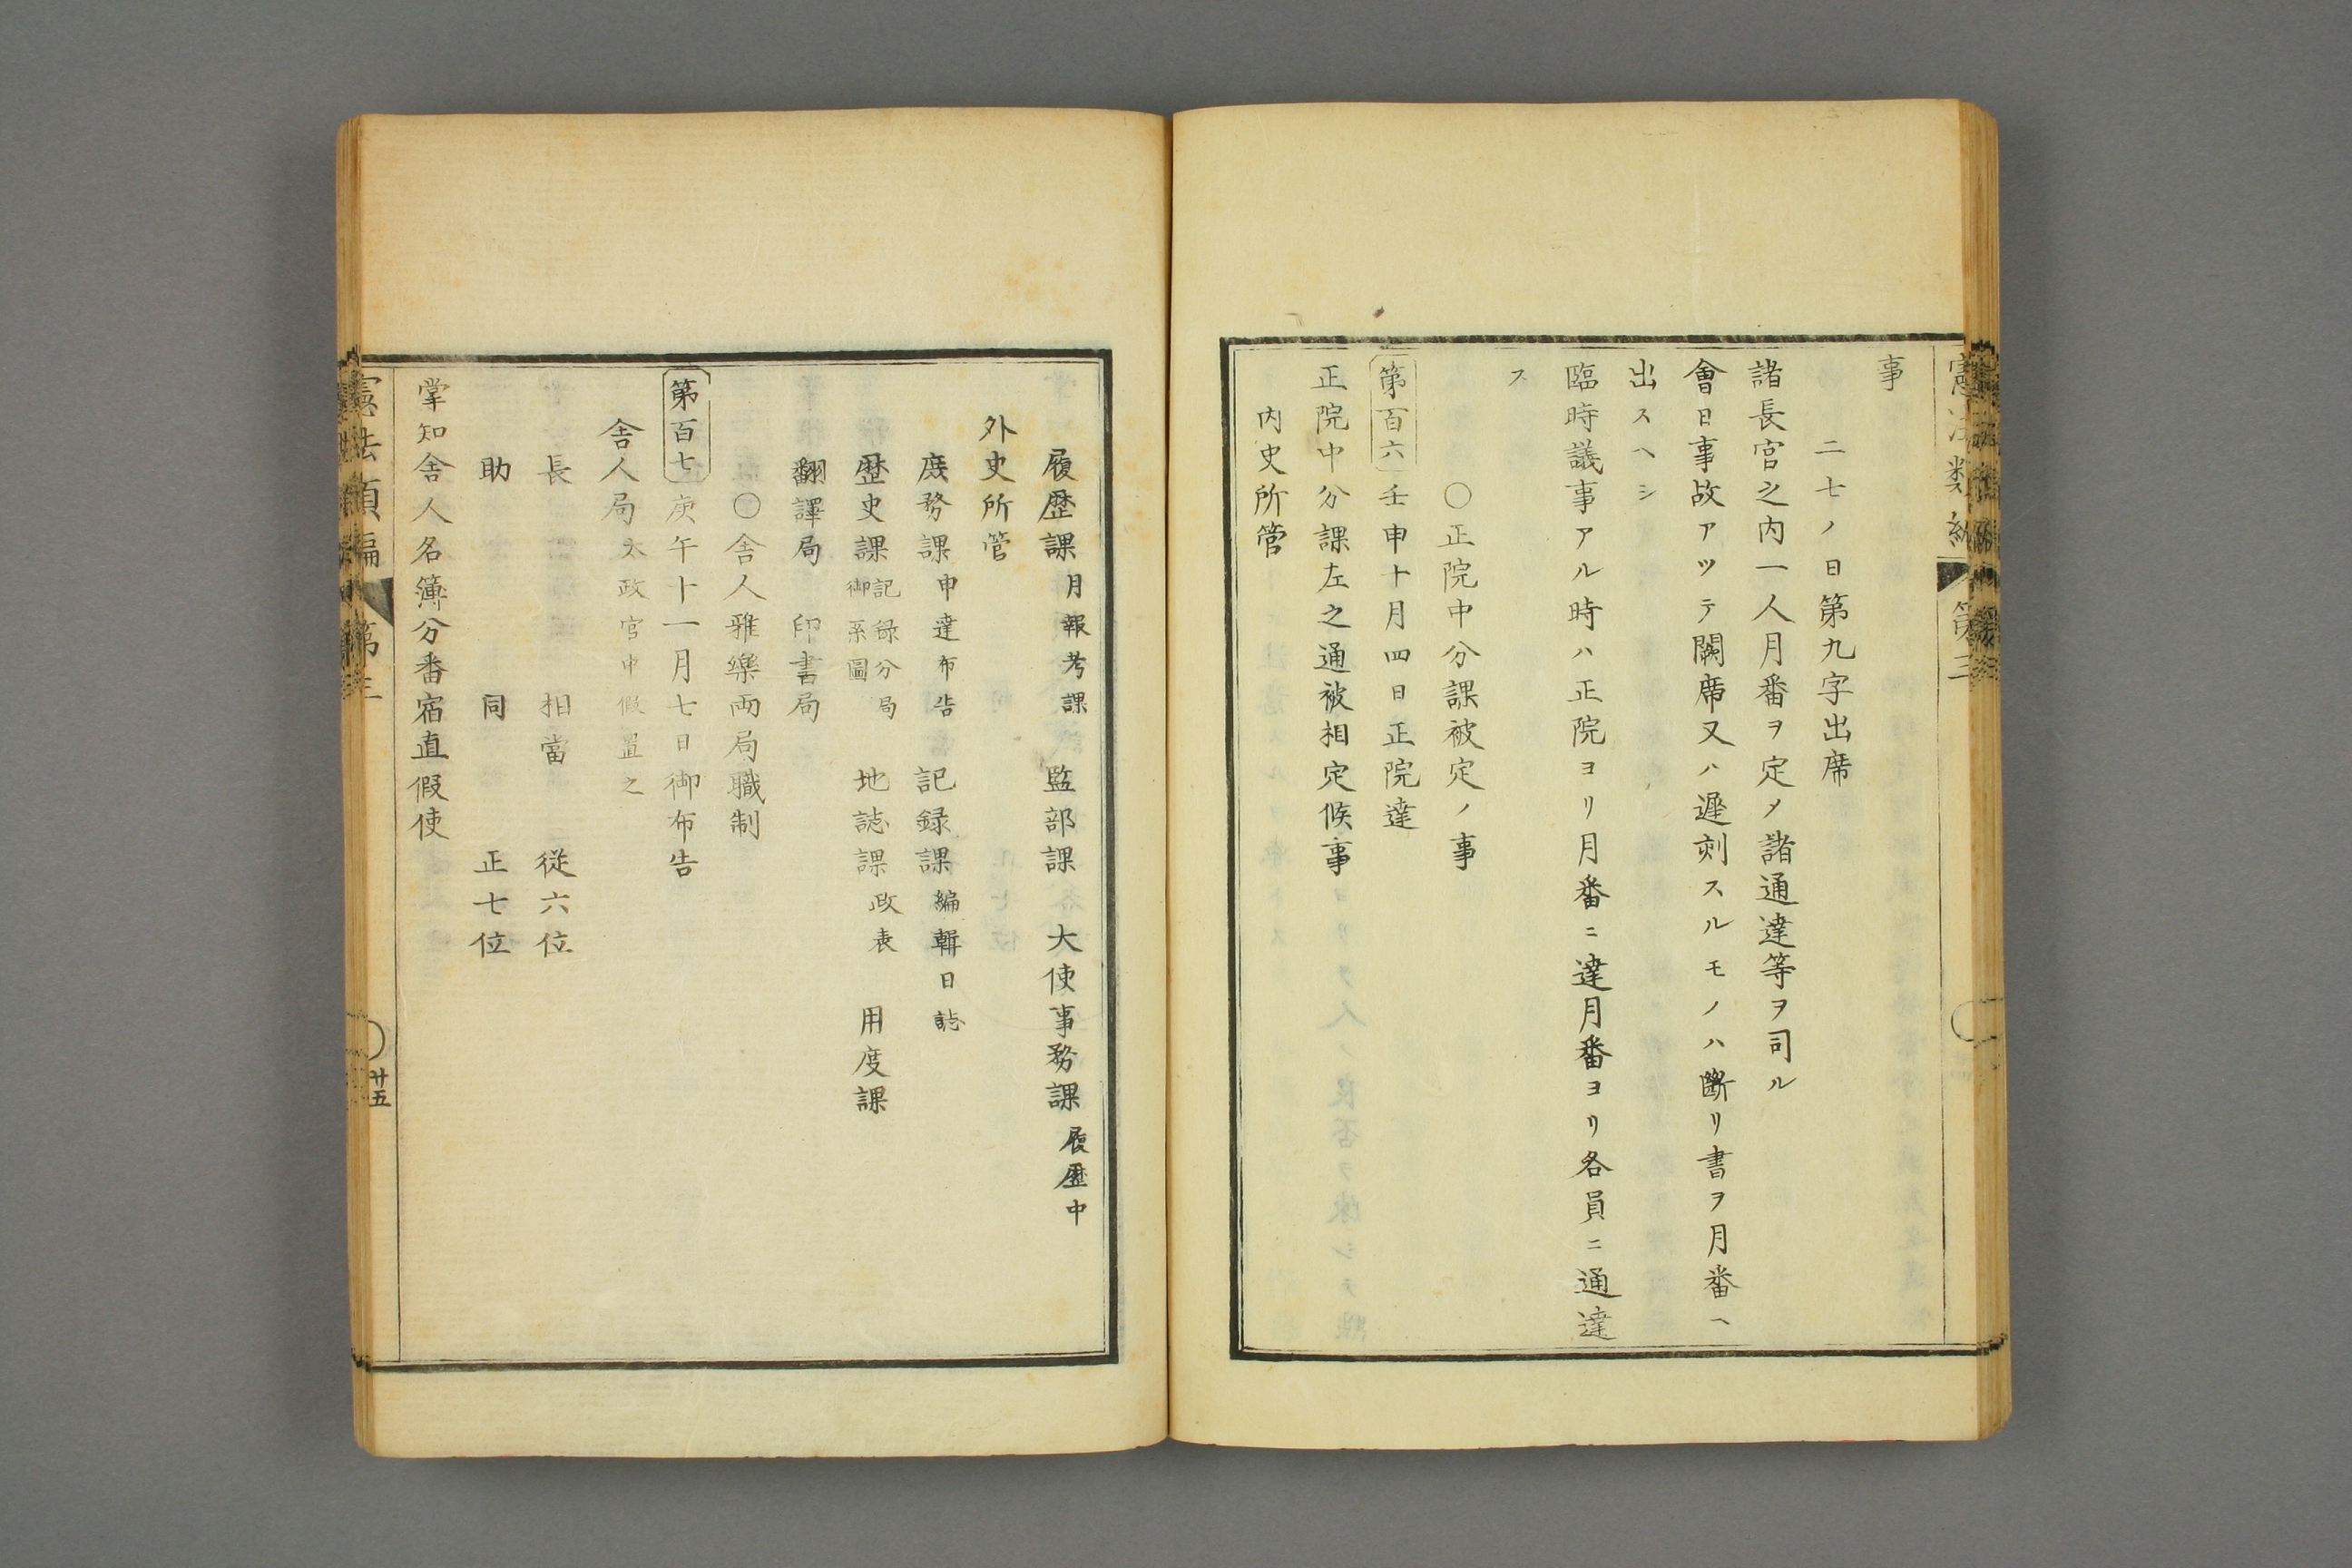 憲法類編 第三
事
二七ノ日第九字出席
諸長官之内一人月番ヲ定メ諸通達等ヲ司ル
會日事故アツテ闕席又ハ遲刻スルモノハ斷リ書ヲ月番ヘ
出スヘシ
臨時議事アル時ハ正院ヨリ月番ニ達月番ヨリ各員ニ通達
ス
〇正院中分課被定ノ事
第百六 壬申十月四日正院達
正院中分課左之通被相定候事
内史所管
履歴課 月報考課 監部課 大使事務課 履歴中
外史所管
庶務課 申達布告 記録課 編輯日誌
歴史課 記録分局 御系圖 地誌課 政表 用度課
翻譯局 印書局
〇舍人雅樂両局職制
第百七 庚午十一月七日御布告
舍人局 太政官中假置之
長 相當 從六位
助 同 正七位
掌知舍人名簿分番宿直假使
憲法類編 第三 廿五